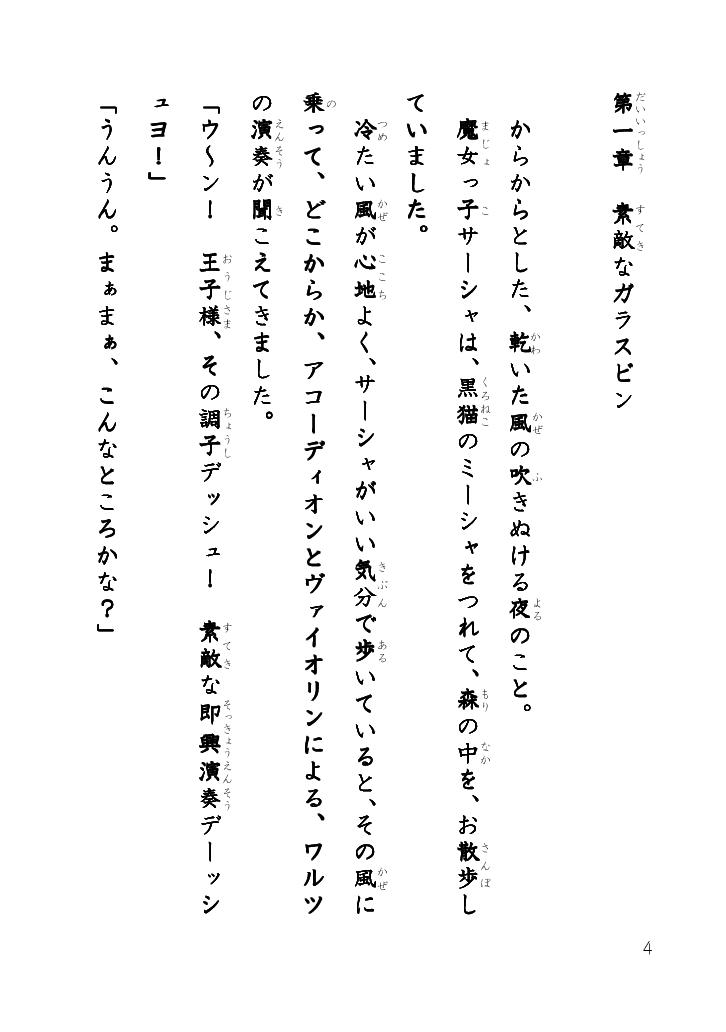 第一章　素敵なガラスビン
からからとした、乾いた風の吹きぬける夜のこと。
魔女っ子サーシャは、黒猫のミーシャをつれて、森の中を、お散歩し
ていました。
冷たい風が心地よく、サーシャがいい気分で歩いていると、その風に
乗って、どこからか、アコーディオンとヴァイオリンによる、ワルツ
の演奏が聞こえてきました。
「ウ～ンー　王子様、その調子デッシュー　素敵な即興演奏デーッシ
ュヨ！」
「うんうん。まぁまぁ、こんなところかな？」
4